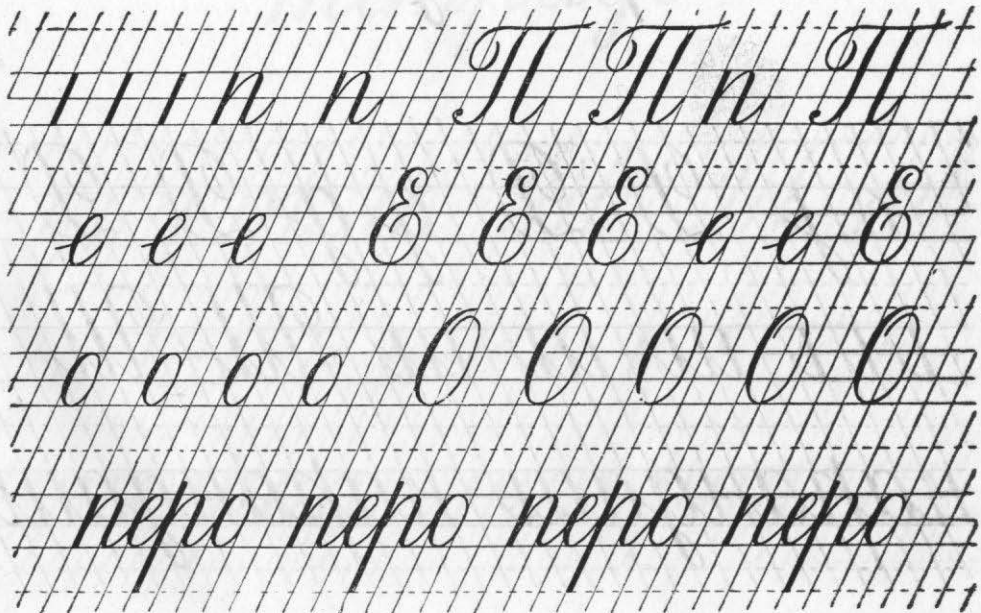 ı ı ı п п П П п П
е е е Е Е Е е е Е
о о о о О О О О О
перо перо перо перо